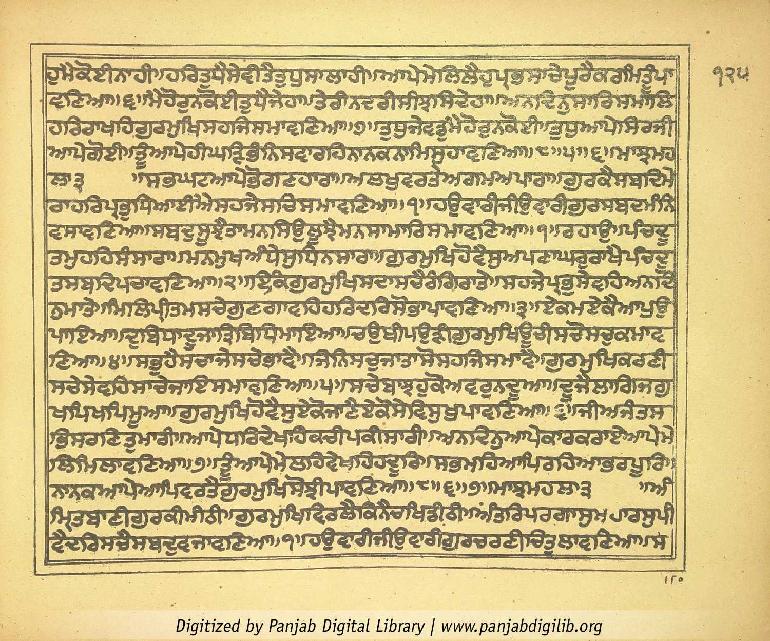 ਹੁਮੈਕੋਈਨਾਹੀ॥ਹਰਿਤੁਧੈਸੇਵੀਤੈਤੁਧੁਸਾਲਾਹੀ॥ਆਪੇਮੇਲਿਲੈਹੁਪ੍ਰਭਸਾਚੇਪੂਰੈਕਰਮਿਤੂੰਪਾ ੧੨੫
ਵਣਿਆ॥੬॥ਮੈਹੋਰੁਨਕੋਈਤੁਧੈਜੇਹਾ॥ਤੇਰੀਨਦਰੀਸੀਝਸਿਦੇਹਾ॥ਅਨਦਿਨੁਸਾਰਿਸਮਾਲਿ
ਹਰਿਰਾਖਹਿਗੁਰਮੁਖਿਸਹਜਿਸਮਾਵਣਿਆ॥੭॥ਤੁਧੁਜੇਵਡੁਮੈਹੋਰੁਨਕੋਈ॥ਤੁਧੁਆਪੇਸਿਰਜੀ
ਆਪੇਗੋਈ॥ਤੂੰਆਪੇਹੀਘੜਿਭੰਨਿਸਵਾਰਹਿਨਾਨਕਨਾਮਿਸੁਹਾਵਣਿਆ॥੮॥੫॥੬॥ਮਾਝਮਹ
ਲਾ੩ ॥ਸਭਘਟਆਪੇਭੋਗਣਹਾਰਾ॥ਅਲਖੁਵਰਤੈਅਗਮਅਪਾਰਾ॥ਗੁਰਕੈਸਬਦਿਮੇ
ਰਾਹਰਿਪ੍ਰਭੁਧਿਆਈਐਸਹਜੇਸਚਿਸਮਾਵਣਿਆ॥੧॥ਹਉਵਾਰੀਜੀਉਵਾਰੀਗੁਰਸਬਦੁਮੰਨਿ
ਵਸਾਵਣਿਆ॥ਸਬਦੁਸੂਝੈਤਾਮਨਸਿਉਲੂਝੈਮਨਸਾਮਾਰਿਸਮਾਵਣਿਆ॥੧॥ਰਹਾਉ॥ਪੰਚਦੂ
ਤਮੁਹਹਿਸੰਸਾਰਾ॥ਮਨਮੁਖਅੰਧੇਸੁਧਿਨਸਾਰਾ॥ਗੁਰਮੁਖਿਹੋਵੈਸੁਅਪਣਾਘਰੁਰਾਖੈਪੰਚਦੂ
ਤਸਬਦਿਪਚਾਵਣਿਆ॥੨॥ਇਕਿਗੁਰਮੁਖਿਸਦਾਸਚੈਰੰਗਿਰਾਤੇ॥ਸਹਜੇਪ੍ਰਭੁਸੇਵਹਿਅਨਦਿ
ਨੁਮਾਤੇ॥ਮਿਲਿਪ੍ਰੀਤਮਸਚੇਗੁਣਗਾਵਹਿਹਰਿਦਰਿਸੋਭਾਪਾਵਣਿਆ॥੩॥ਏਕਮਏਕੈਆਪੁਉ
ਪਾਇਆ॥ਦੁਬਿਧਾਦੂਜਾਤ੍ਰਿਬਿਧਿਮਾਇਆ॥ਚਉਥੀਪਉੜੀਗੁਰਮੁਖਿਊਚੀਸਚੋਸਚੁਕਮਾਵ
ਣਿਆ॥੪॥ਸਭੁਹੈਸਚਾਜੇਸਚੇਭਾਵੈ॥ਜਿਨਿਸਚੁਜਾਤਾਸੋਸਹਜਿਸਮਾਵੈ॥ਗੁਰਮੁਖਿਕਰਣੀ
ਸਚੇਸੇਵਹਿਸਾਚੇਜਾਇਸਮਾਵਣਿਆ॥੫॥ਸਚੇਬਾਝਹੁਕੋਅਵਰੁਨਦੂਆ॥ਦੂਜੈਲਾਗਿਜਗੁ
ਖਪਿਖਪਿਮੂਆ॥ਗੁਰਮੁਖਿਹੋਵੈਸੁਏਕੋਜਾਣੈਏਕੋਸੇਵਿਸੁਖੁਪਾਵਣਿਆ॥੬॥ਜੀਅਜੰਤਸ
ਭਿਸਰਣਿਤੁਮਾਰੀ॥ਆਪੇਧਰਿਦੇਖਹਿਕਚੀਪਕੀਸਾਰੀ॥ਅਨਦਿਨੁਆਪੇਕਾਰਕਰਾਏਆਪੇਮੇ
ਲਿਮਿਲਾਵਣਿਆ॥੭॥ਤੂੰਆਪੇਮੇਲਹਿਵੇਖਹਿਹਦੂਰਿ॥ਸਭਮਹਿਆਪਿਰਹਿਆਭਰਪੂਰਿ॥
ਨਾਨਕਆਪੇਆਪਿਵਰਤੈਗੁਰਮੁਖਿਸੋਝੀਪਾਵਣਿਆ॥੮॥੬॥੭॥ਮਾਝਮਹਲਾ੩ ॥ਅੰ
ਮ੍ਰਿਤਬਾਣੀਗੁਰਕੀਮੀਠੀ॥ਗੁਰਮੁਖਿਵਿਰਲੈਕਿਨੈਚਖਿਡੀਠੀ॥ਅੰਤਰਿਪਰਗਾਸੁਮਹਾਰਸੁਪੀ
ਵੈਦਰਿਸਚੈਸਬਦੁਵਜਾਵਣਿਆ॥੧॥ਹਉਵਾਰੀਜੀਉਵਾਰੀਗੁਰਚਰਣੀਚਿਤੁਲਾਵਣਿਆ॥ਸ
Digitized by Panjab Digital Library | www.panjabdigilib.org